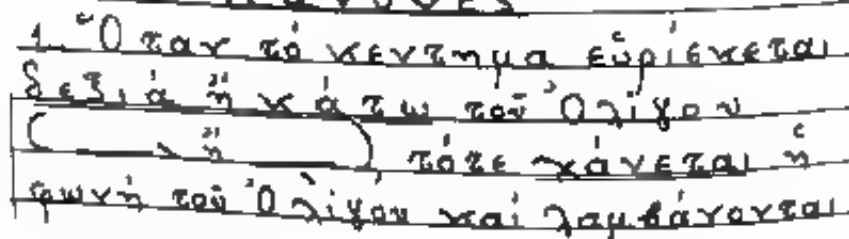 ΚΑΝΟΝΕΣ
1. Ὅταν τό κεντημα εὑρίσκεται
δεξιά ἤ κάτω τοῦ Ὀλίγου
( ἤ ) τότε χάνεται ἡ
φωνή τοῦ Ὀλίγου καί λαμβάνονται